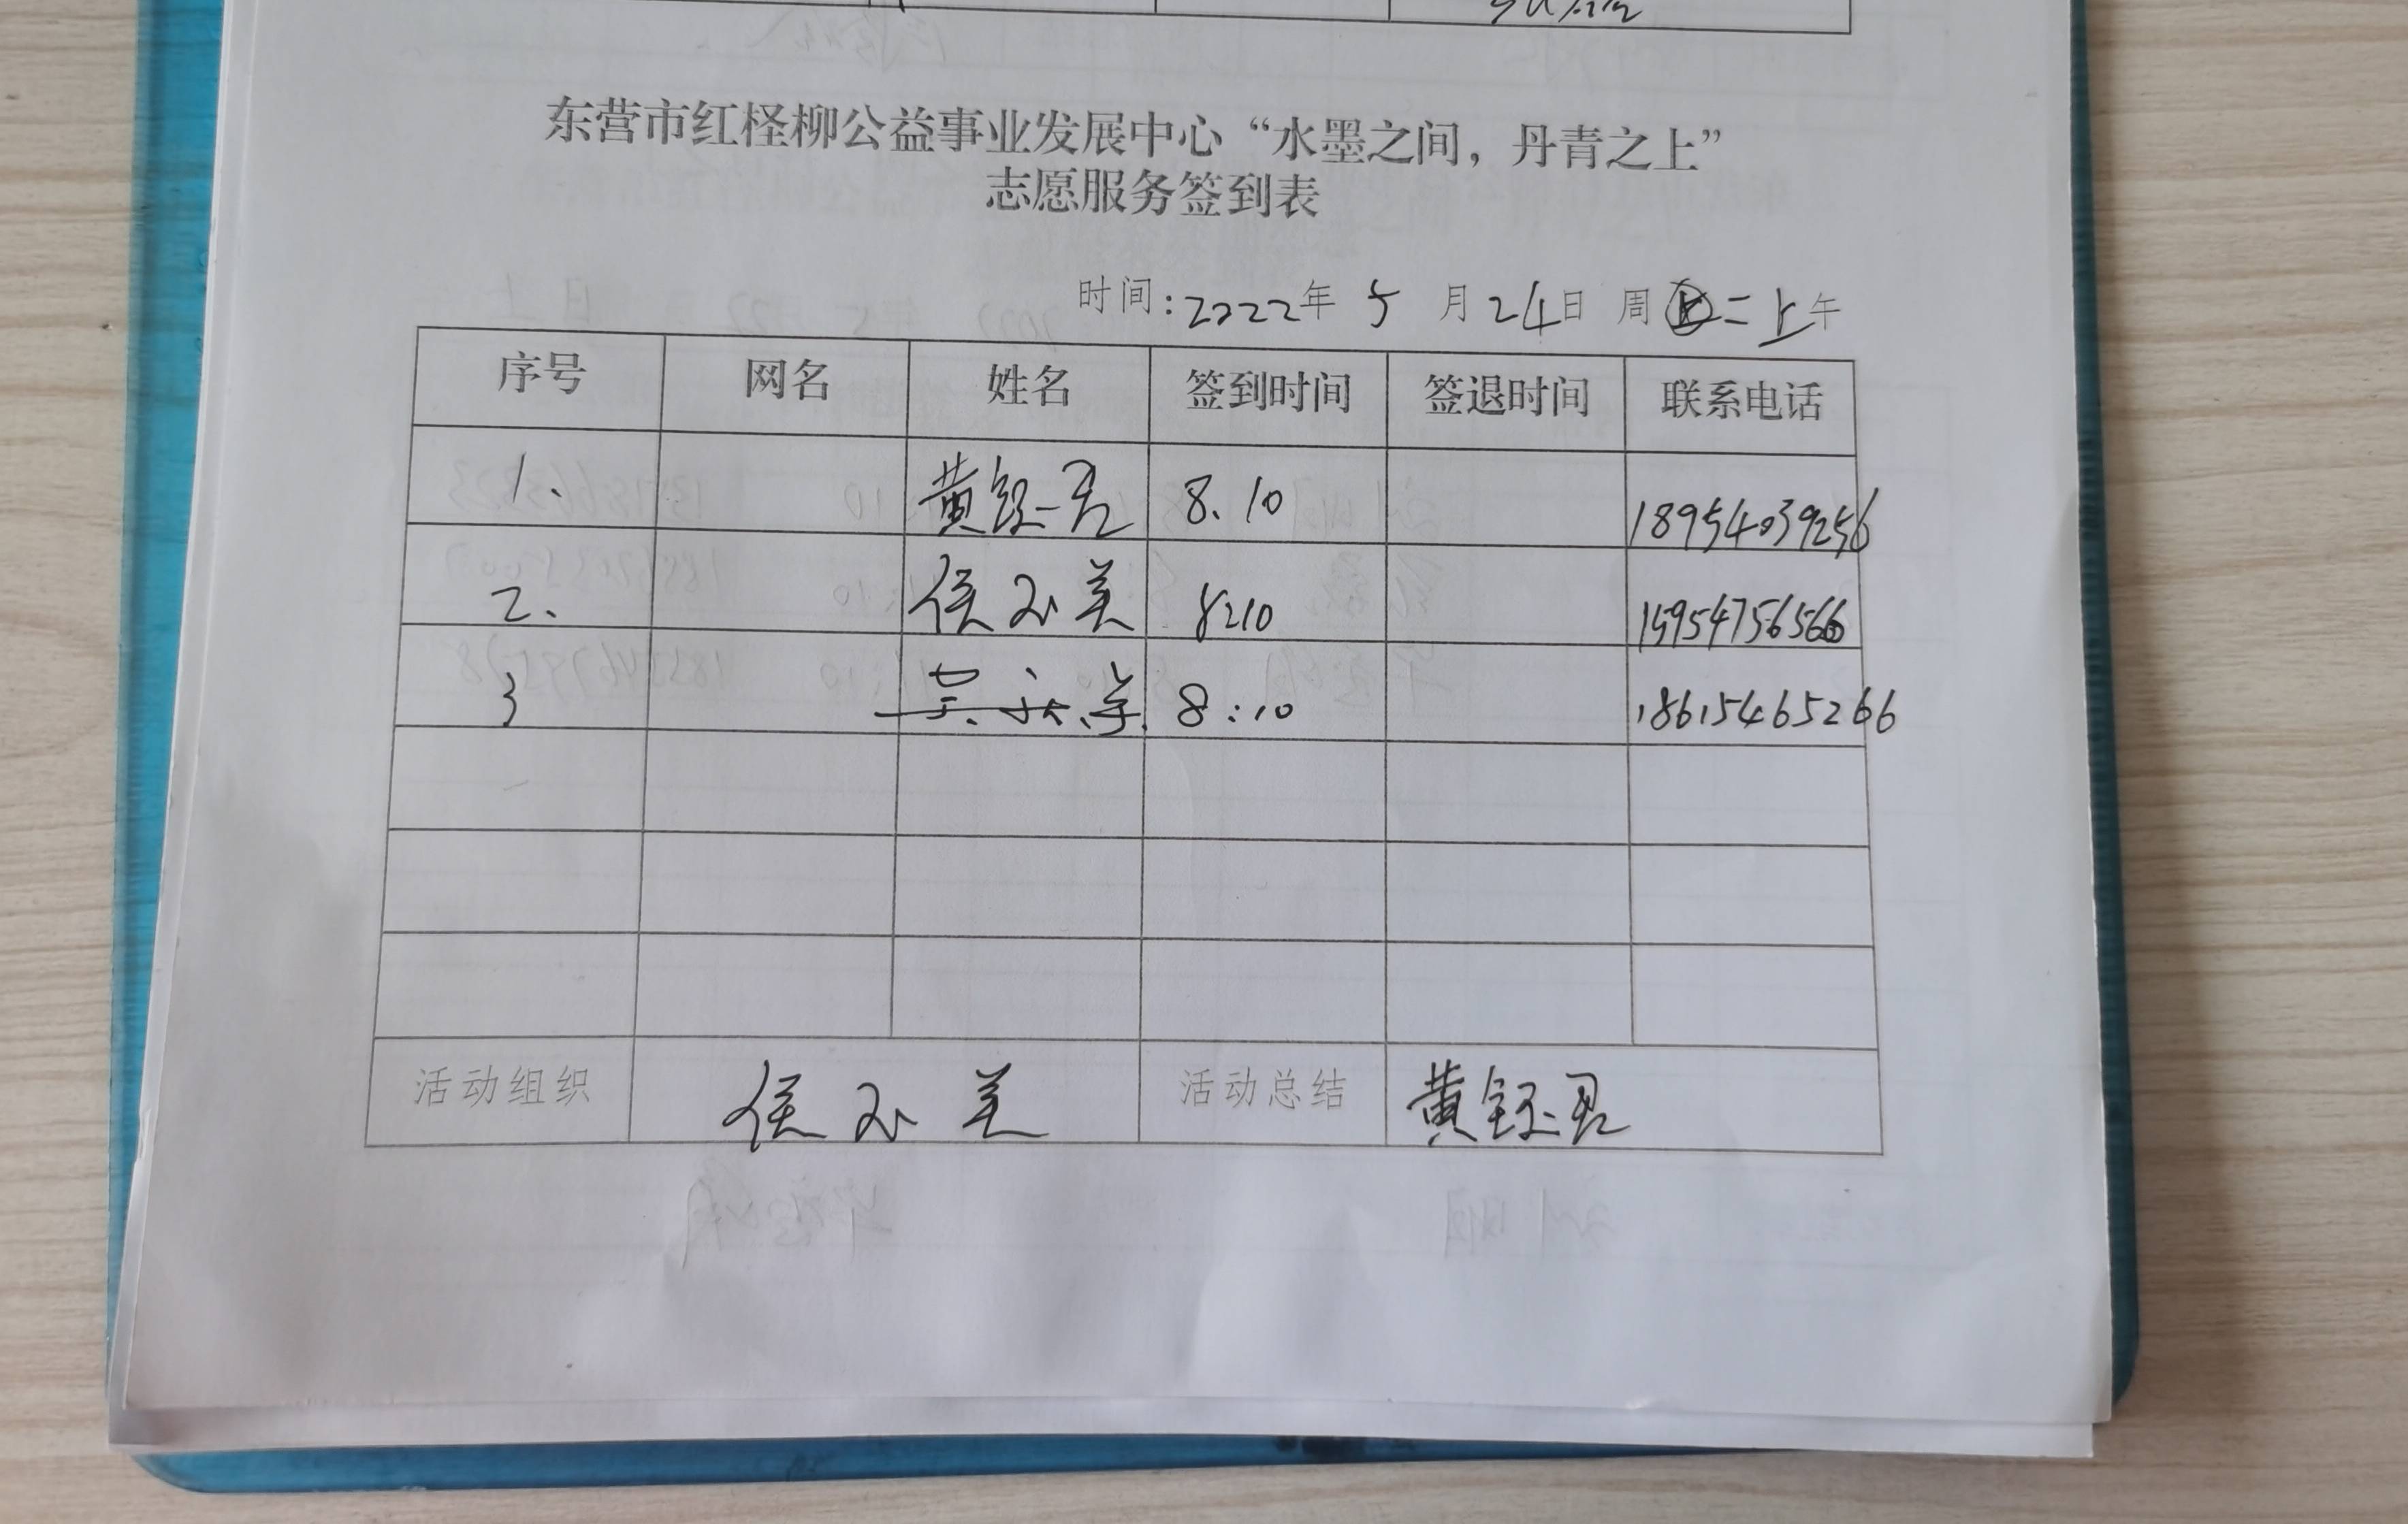 东营市红柽柳公益事业发展中心“水墨之间，丹青之上”
志愿服务签到表
时间:2222年 5 月24日 周二上午
序号 网名 姓名 签到时间 签退时间 联系电话
1、 黄钰君 8、10 18954039256
2、 侯玉美 8:10 15954756566
3 8:10 18615465266
活动组织 侯玉美 活动总结 黄钰君